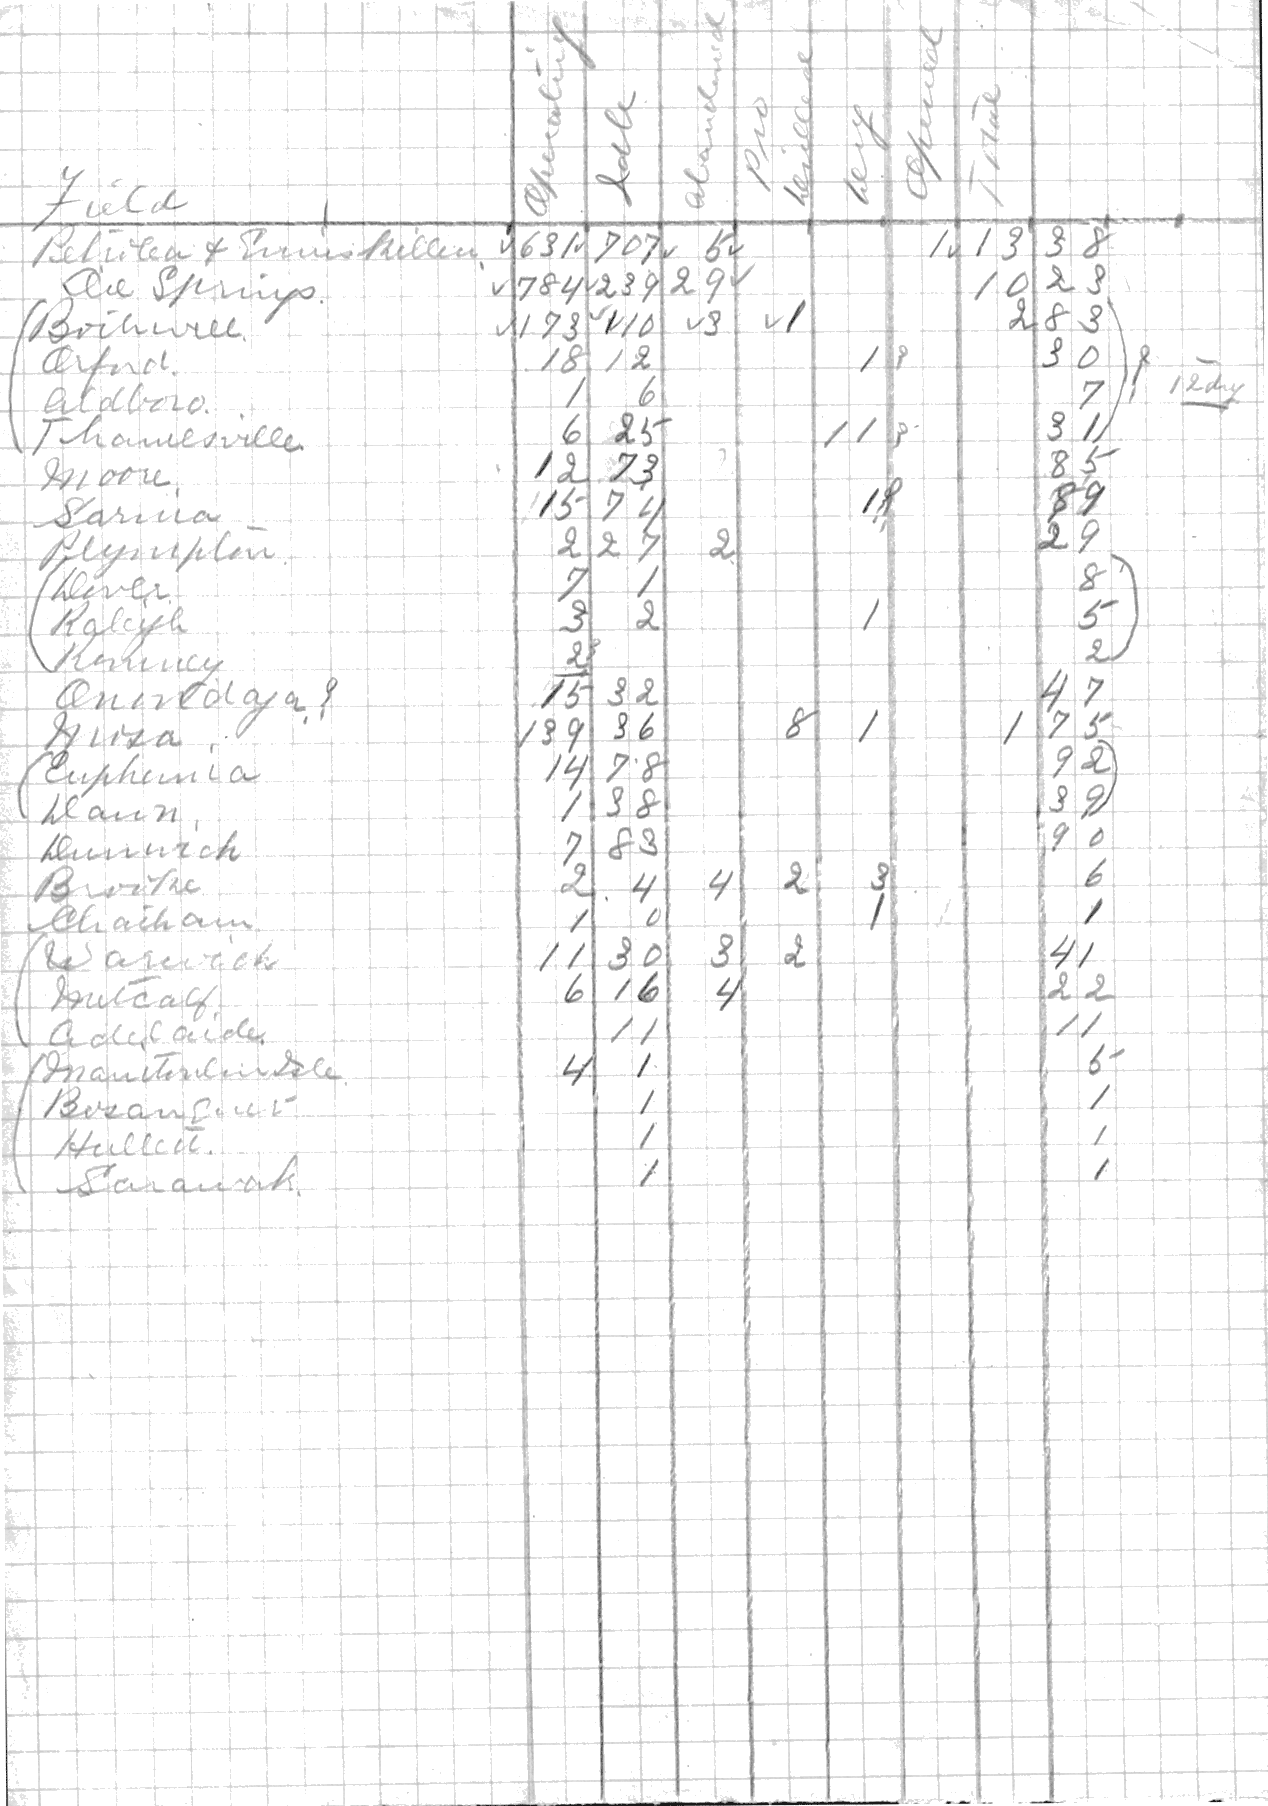 Field Operating Idle Abandoned Pro Drilled Dry Opened Total
Petrolea & Enniskillen ✓631 ✓707 ✓ 5✓ 1✓ 1338
Oil Springs. ✓784 ✓239 29✓ 1023
Bothwell ✓173 ✓110 ✓3 ✓1 283
Orford. 18 12 1 ? 30
Aldboro. 1 6 7 ? 12 dry
Thamesville 6 25 11 ? 31
Moore 12 73 85
Sarnia 15 74 1? 89
Plympton 2 27 2 29
Dover 7 1 8
Raleigh 3 2 1 5
Romney 2 2
Onondaga ? 15 32 47
Mosa 139 36 8 1 175
Euphemia 14 78 92
Dawn 1 38 39
Dunwich 7 83 90
Brooke 2 4 4 2 3 6
Chatham 1 0 1 1
Warwick 11 30 3 2 41
Metcalf 6 16 4 22
Adelaide 11 11
Manitoulin Isle 4 1 5
Bosanquet 1 1
Hullett. 1 1
Sarawak. 1 1